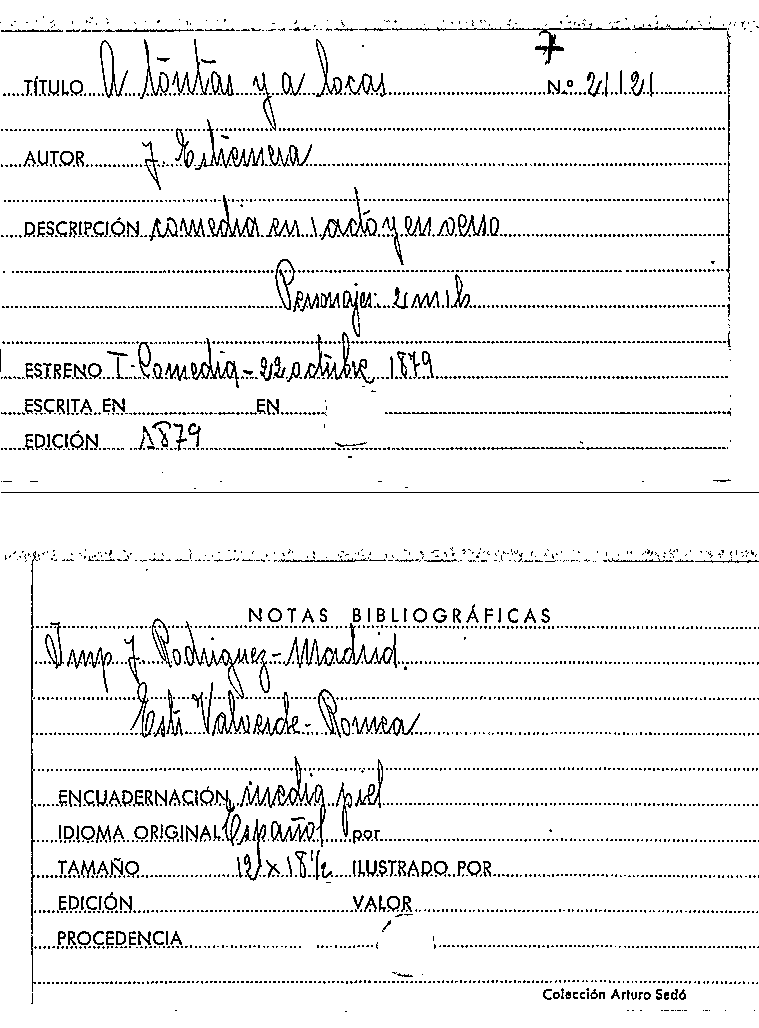 7
TÍTULO A tontas y a locas N.º 21121
AUTOR J. Estremera
DESCRIPCIÓN comedia en 1 acto y en verso
Personajes: 2 m 1 h
ESTRENO T. Comedia - 22 octubre 1879
ESCRITA EN EN
EDICIÓN 1879
NOTAS BIBLIOGRÁFICAS
Imp J. Rodriguez - Madrid.
Est: Valverde - Romea
ENCUADERNACIÓN media piel
IDIOMA ORIGINAL Español por
TAMAÑO 12 x 18 1/2 ILUSTRADO POR
EDICIÓN VALOR
PROCEDENCIA
Colección Arturo Sedó